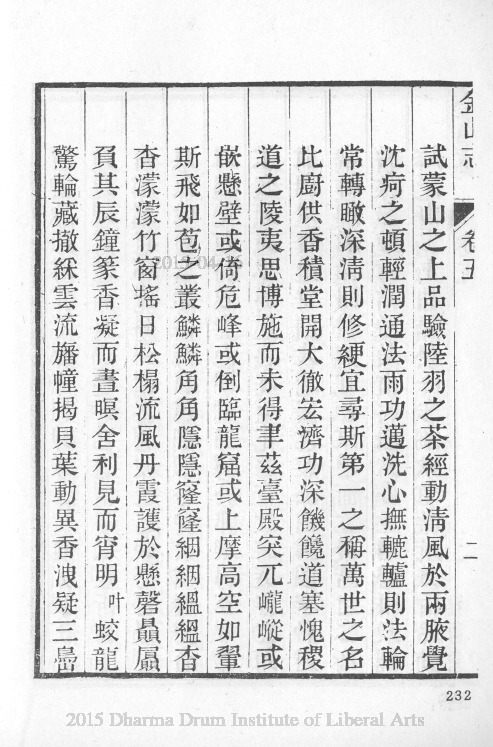 金山志 卷五 二
試蒙山之上品驗陸羽之茶經動淸風於兩腋覺
沈疴之頓輕潤通法雨功邁洗心撫轆轤則法輪
常轉瞰深淸則修綆宜尋斯第一之稱萬世之名
比廚供香積堂開大徹宏濟功深饑饞道塞愧稷
道之陵夷思博施而未得聿茲臺殿突兀巃嵷或
嵌懸壁或倚危峰或倒臨龍窟或上摩高空如翬
斯飛如苞之叢鱗鱗角角隱隱窿窿絪絪縕縕杳
杳濛濛竹窗搖日松榻流風丹霞護於懸磬贔屭
負其辰鐘篆香凝而晝暝舍利見而宵明叶蛟龍
驚輪藏撤綵雲流旛幢揭貝葉動異香洩疑三島
232
2015 Dharma Drum Institute of Liberal Arts